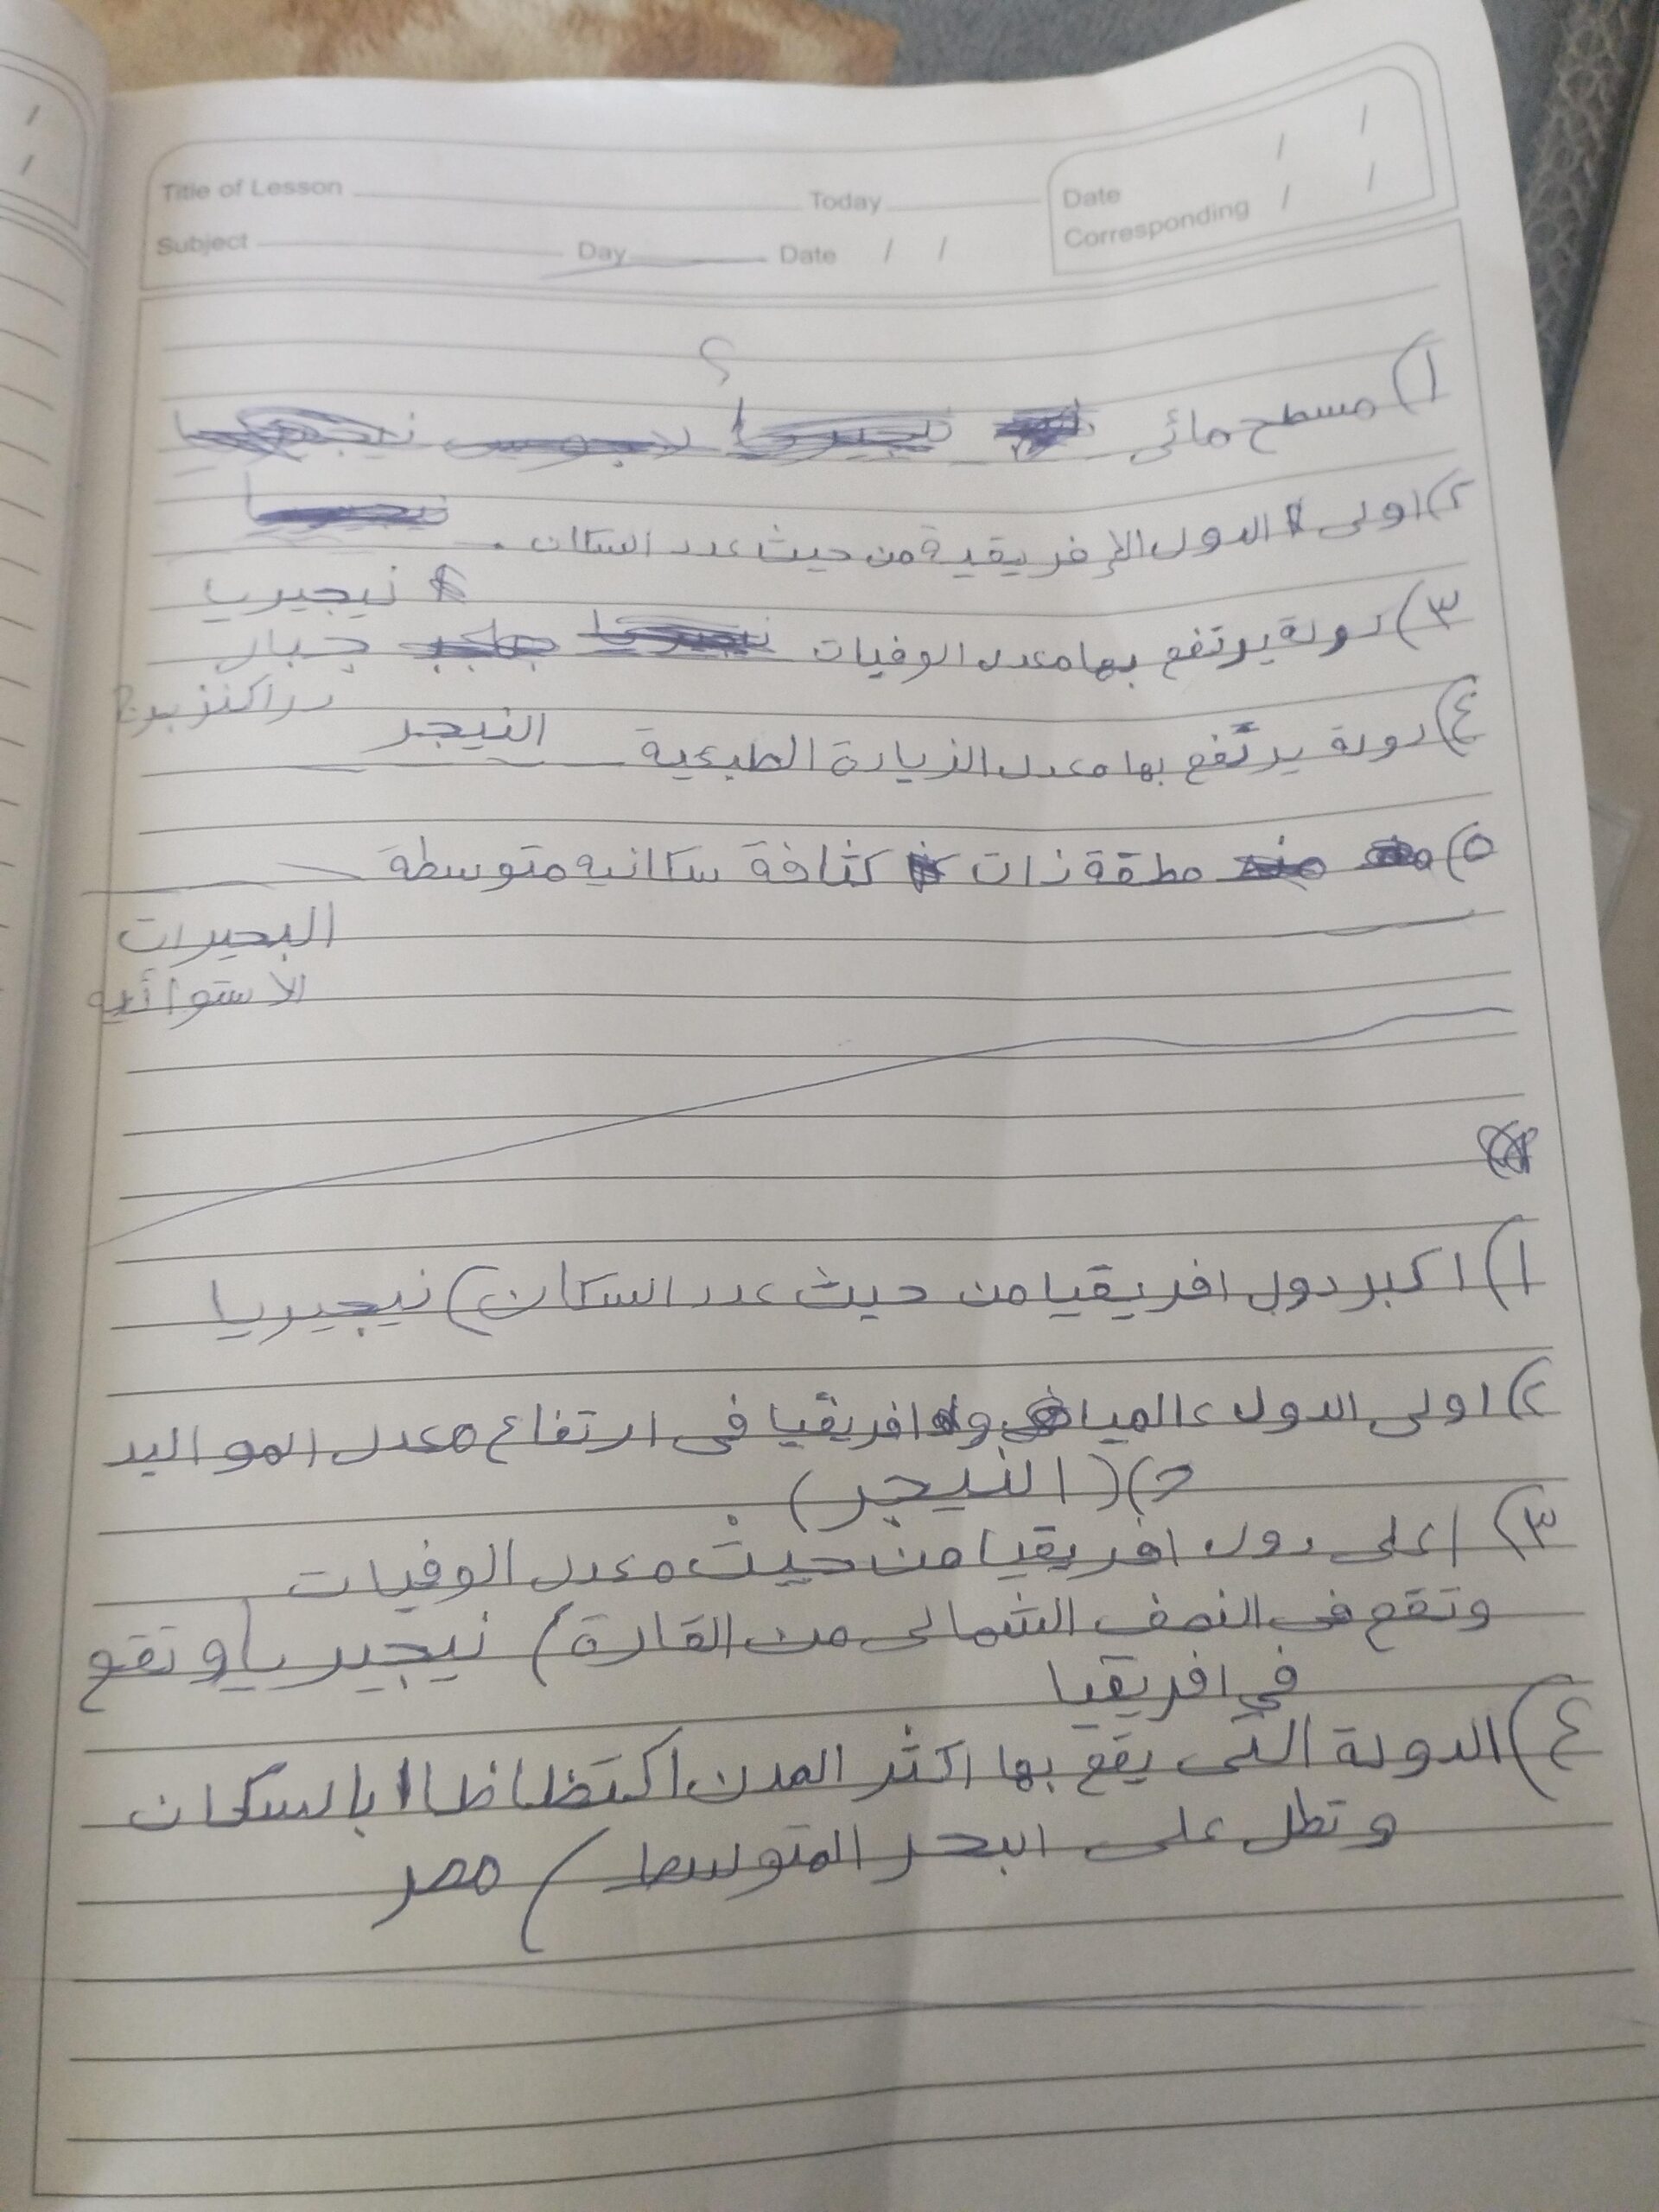 Title of Lesson Today Date / /
Corresponding / /
Subject Day Date / /
؟
١) مسطح مائى نيجيريا لاجوس نيجيريا
٢) اولى الدول الإفريقية من حيث عدد السكان . نيجيريا
نيجيريا
٣) دولة يرتفع بها معدل الوفيات نيجيريا جبال
دراكنزبرج
٤) دولة يرتفع بها معدل الزيادة الطبعية النيجر
٥) مطقة ذات كثافة سكانيه متوسطة
البحيرات
الاستوائيه
١) اكبر دول افريقيا من حيث عدد السكان) نيجيريا
٢) اولى الدول عالميا وافريقيا فى ارتفاع معدل المواليد
ج) (النيجر)
٣) اعلى دول افريقيا من حيث معدل الوفيات
وتقع فى النصف الشمالى من القارة) نيجيريا وتقع
فى افريقيا
٤) الدولة التى يقع بها اكثر المدن اكتظاظاا بالسكان
وتطل على البحر المتوسط) مصر